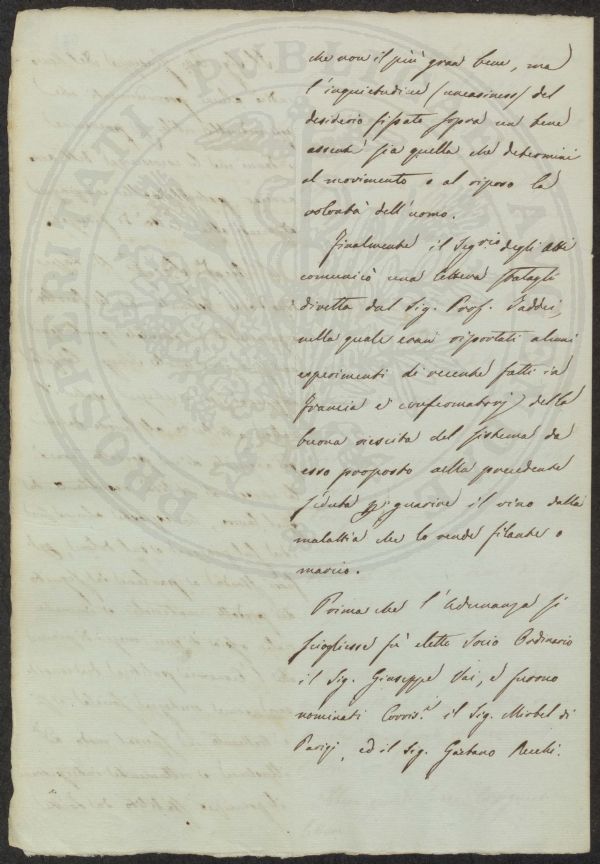 che non il più gran bene, ma
l'inquietudine (uneasiness) del
desiderio fissato sopra un bene
assente sia quella che determini
al movimento o al riposo la
volontà dell'uomo.
Finalmente il Sig.rio degli Atti
comunicò una lettera
diretta dal Sig. Prof. Taddei,
nella quale erano riportati alcuni
esperimenti di recente fatti in
Francia e confermatorj della
buona riescita del sistema da
esso proposto nella precedente
seduta per guarire il vino dalla
malattia che lo rende filante o
marcio.
Prima che l'Adunanza si
sciogliesse fù eletto Socio Ordinario
il Sig. Giuseppe Vai, e furono
nominati Corris.ti il Sig. Mirbel di
Parigi, ed il Sig. Gaetano Recchi.
PROSPERITATI PUBLICAE